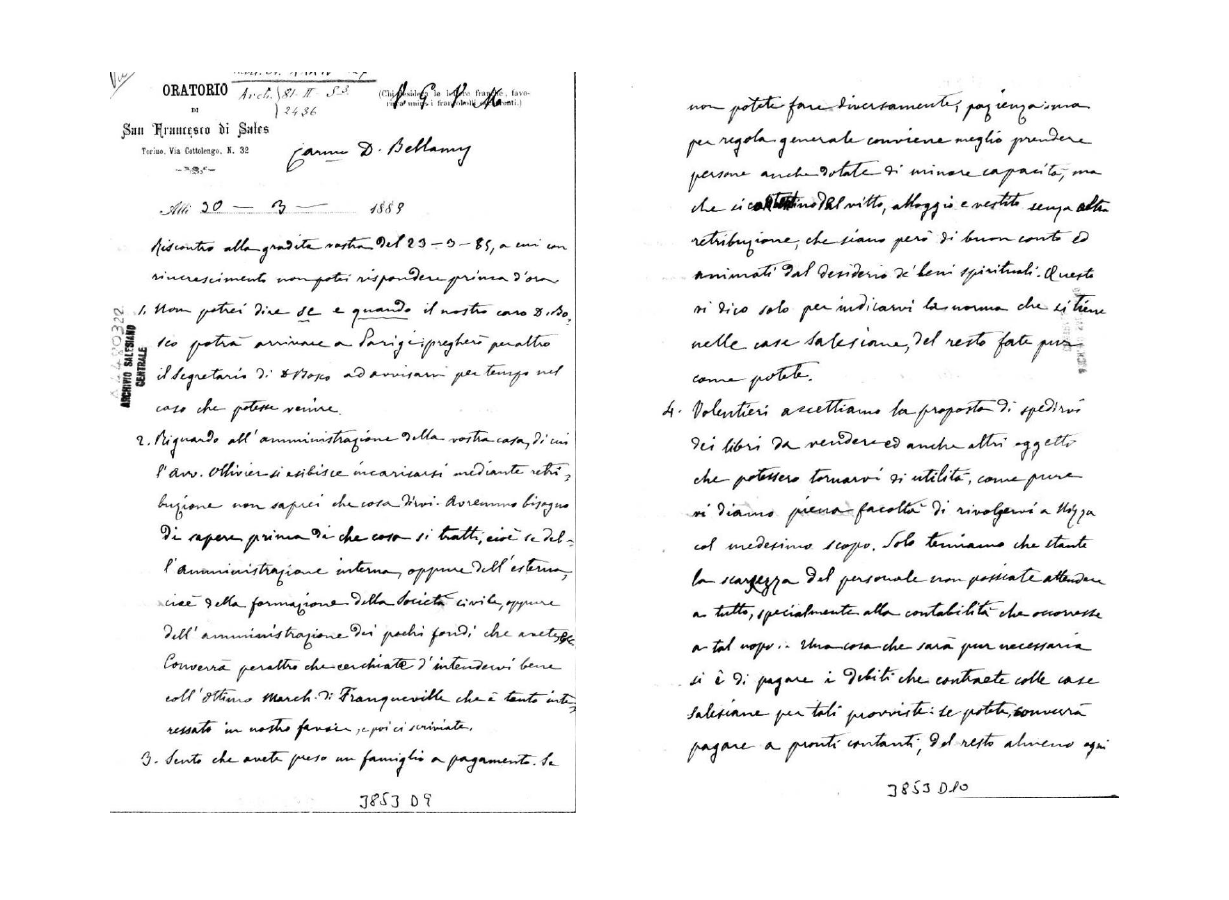 ORATORIO
DI
San Francesco di Sales
Torino, Via Cottolengo, N. 32
Arch. 81. II S.S.
2436
V. G. V. M.
Carmo D. Bellamy
Alli 30 - 3 - 1889
Riscontro alla gradita vostra del 23-3-85, a cui con
rincrescimento non potei rispondere prima d'ora
1. Non potrei dire se e quando il nostro caro D. Bo,
sco potrà arrivare a Parigi; pregherò peraltro
il Segretario di D Bosco ad avvisarvi per tempo nel
caso che potesse venire.
2. Riguardo all'amministrazione della vostra casa, di cui
l'Avv. Ollivier si esibisce incaricarsi mediante retri,
buzione non saprei che cosa dirvi. Avremmo bisogno
di sapere prima di che cosa si tratti, cioè se del-
l'amministrazione interna, oppure dell'esterna,
cioè della formazione della Società civile, oppure
dell'amministrazione dei pochi fondi che avete, &c
Converrà peraltro che cerchiate d'intendervi bene
coll'Ottimo March. di Franqueville che è tanto inte,
ressato in nostro favore, e poi ci scriviate.
3. Sento che avete preso un famiglio a pagamento. Se
3853 D9
ARCHIVIO SALESIANO
CENTRALE
non potete fare diversamente, pazienza: ma
per regola generale conviene meglio prendere
persone anche dotate di minore capacità, ma
che si contentino del vitto, alloggio e vestito senza altra
retribuzione, che siano però di buon conto ed
animati dal desiderio de' beni spirituali. Questo
vi dico solo per indicarvi la norma che si tiene
nelle case Salesiane, del resto fate pur
come potete.
4. Volentieri accettiamo la proposta di spedirvi
dei libri da vendere ed anche altri oggetti
che potessero tornarvi di utilità, come pure
vi diamo piena facoltà di rivolgervi a Nizza
col medesimo scopo. Solo temiamo che stante
la scarsezza del personale non possiate attendere
a tutto, specialmente alla contabilità che occorresse
a tal uopo. Una cosa che sarà pur necessaria
si è di pagare i debiti che contraete colle case
Salesiane per tali provviste: se potete, converrà
pagare a pronti contanti, del resto almeno ogni
3853 D10